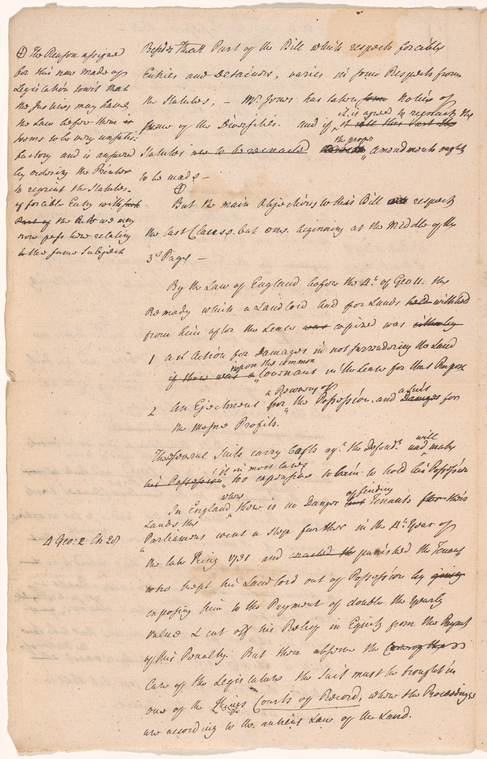 ⊕ The Reason assigned
for this new mode of
Legislation (towit that
the Justices may have
the Law before them is
seems to be very unsatis-
factory and is answered
by ordering the Printer
to reprint the Statutes
of forcible Entry with such
Part of the Bill as we may
now pass here relating
to the same Subject
Besides That Part of the Bill which respects forcible
Entries and Detainers, varies in some Respects from
the Statutes, – Mr Jones has taken some Notice of
some of the Diversities. and if it is agreed to reprint the
Statutes are to be reenacted the proper Amendments ought
to be made –
⊕
But the main Objections to this Bill are respects
the last Clause but one. beginning at the Middle of the
3d Page –
By the Law of England before the 4th of Geo II. the
Remedy which a Landlord had for Lands held withheld
from him after the Lease was expired was
1 an Action for Damages in not surrendering the Land
if there was a upon the common Covenant in the Lease for that Purpose
2 An Ejectment for a Recovery of the Possession, and a Suit for
the Mesne Profits.
These several Suits carry Costs agt. the Defendt. and will make
his Possession it in most cases too expensive to him to hold the Possession
In England where there is no Danger of finding Tenants for their
Lands the
Parliament went a Step further in the 4th Year of
the late King 1731 and punished the Tenant
who kept his Landlord out of Possession by
exposing him to the Payment of double the Yearly
Value & cut off his Relief in Equity from the Payment
of this Penalty. But then observe the
Care of the Legislature the Suit must be brought in
one of the Kings Courts of Record, where the Proceedings
are according to the antient Law of the Land.
4 Geo: 2 Ch 28